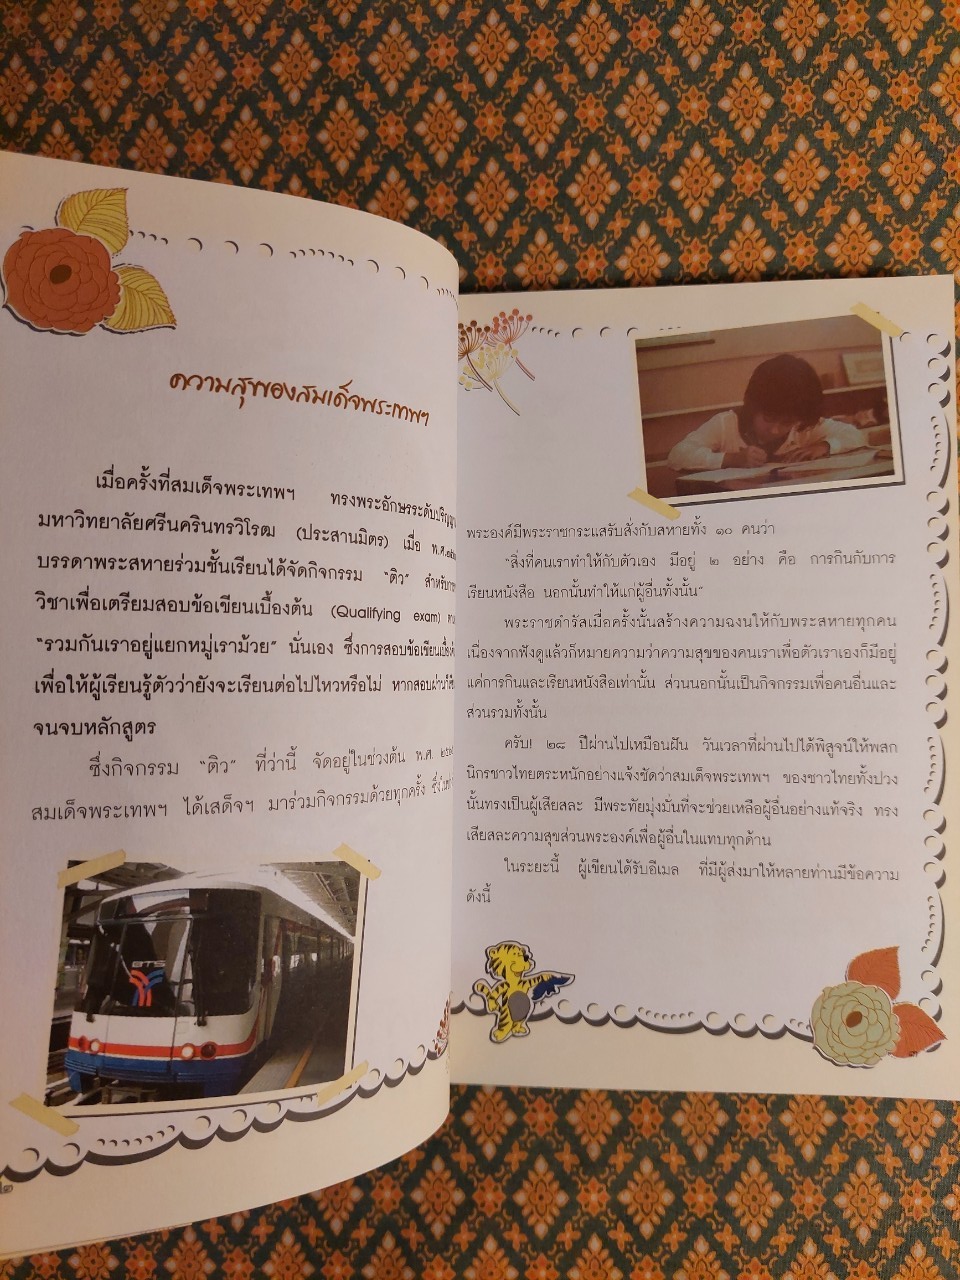 ความสุขของสมเด็จพระเทพฯ
เมื่อครั้งที่สมเด็จพระเทพฯ ทรงพระอักษรระดับปริญญา
มหาวิทยาลัยศรีนครินทรวิโรฒ (ประสานมิตร) เมื่อ พ.ศ.
บรรดาพระสหายร่วมชั้นเรียนได้จัดกิจกรรม “ติว”
วิชาเพื่อเตรียมสอบข้อเขียนเบื้องต้น (Qualifying exam)
“รวมกันเราอยู่แยกหมู่เราม้วย” นั่นเอง ซึ่งการสอบข้อเขียน
เพื่อให้ผู้เรียนรู้ตัวว่ายังจะเรียนต่อไปไหวหรือไม่ หากสอบผ่าน
จนจบหลักสูตร
ซึ่งกิจกรรม “ติว” ที่ว่านี้ จัดอยู่ในช่วงต้น พ.ศ.
สมเด็จพระเทพฯ ได้เสด็จฯ มาร่วมกิจกรรมด้วยทุกครั้ง
BTS
พระองค์มีพระราชกระแสรับสั่งกับสหายทั้ง ๑๐ คนว่า
“สิ่งที่คนเราทำให้กับตัวเอง มีอยู่ ๒ อย่าง คือ การกินกับการ
เรียนหนังสือ นอกนั้นทำให้แก่ผู้อื่นทั้งนั้น”
พระราชดำรัสเมื่อครั้งนั้นสร้างความฉงนให้กับพระสหายทุกคน
เนื่องจากฟังดูแล้วก็หมายความว่าความสุขของคนเราเพื่อตัวเราเองก็มีอยู่
แค่การกินและเรียนหนังสือเท่านั้น ส่วนนอกนั้นเป็นกิจกรรมเพื่อคนอื่นและ
ส่วนรวมทั้งนั้น
ครับ! ๒๘ ปีผ่านไปเหมือนฝัน วันเวลาที่ผ่านไปได้พิสูจน์ให้พสก
นิกรชาวไทยตระหนักอย่างแจ้งชัดว่าสมเด็จพระเทพฯ ของชาวไทยทั้งปวง
นั้นทรงเป็นผู้เสียสละ มีพระทัยมุ่งมั่นที่จะช่วยเหลือผู้อื่นอย่างแท้จริง ทรง
เสียสละความสุขส่วนพระองค์เพื่อผู้อื่นในแทบทุกด้าน
ในระยะนี้ ผู้เขียนได้รับอีเมล ที่มีผู้ส่งมาให้หลายท่านมีข้อความ
ดังนี้